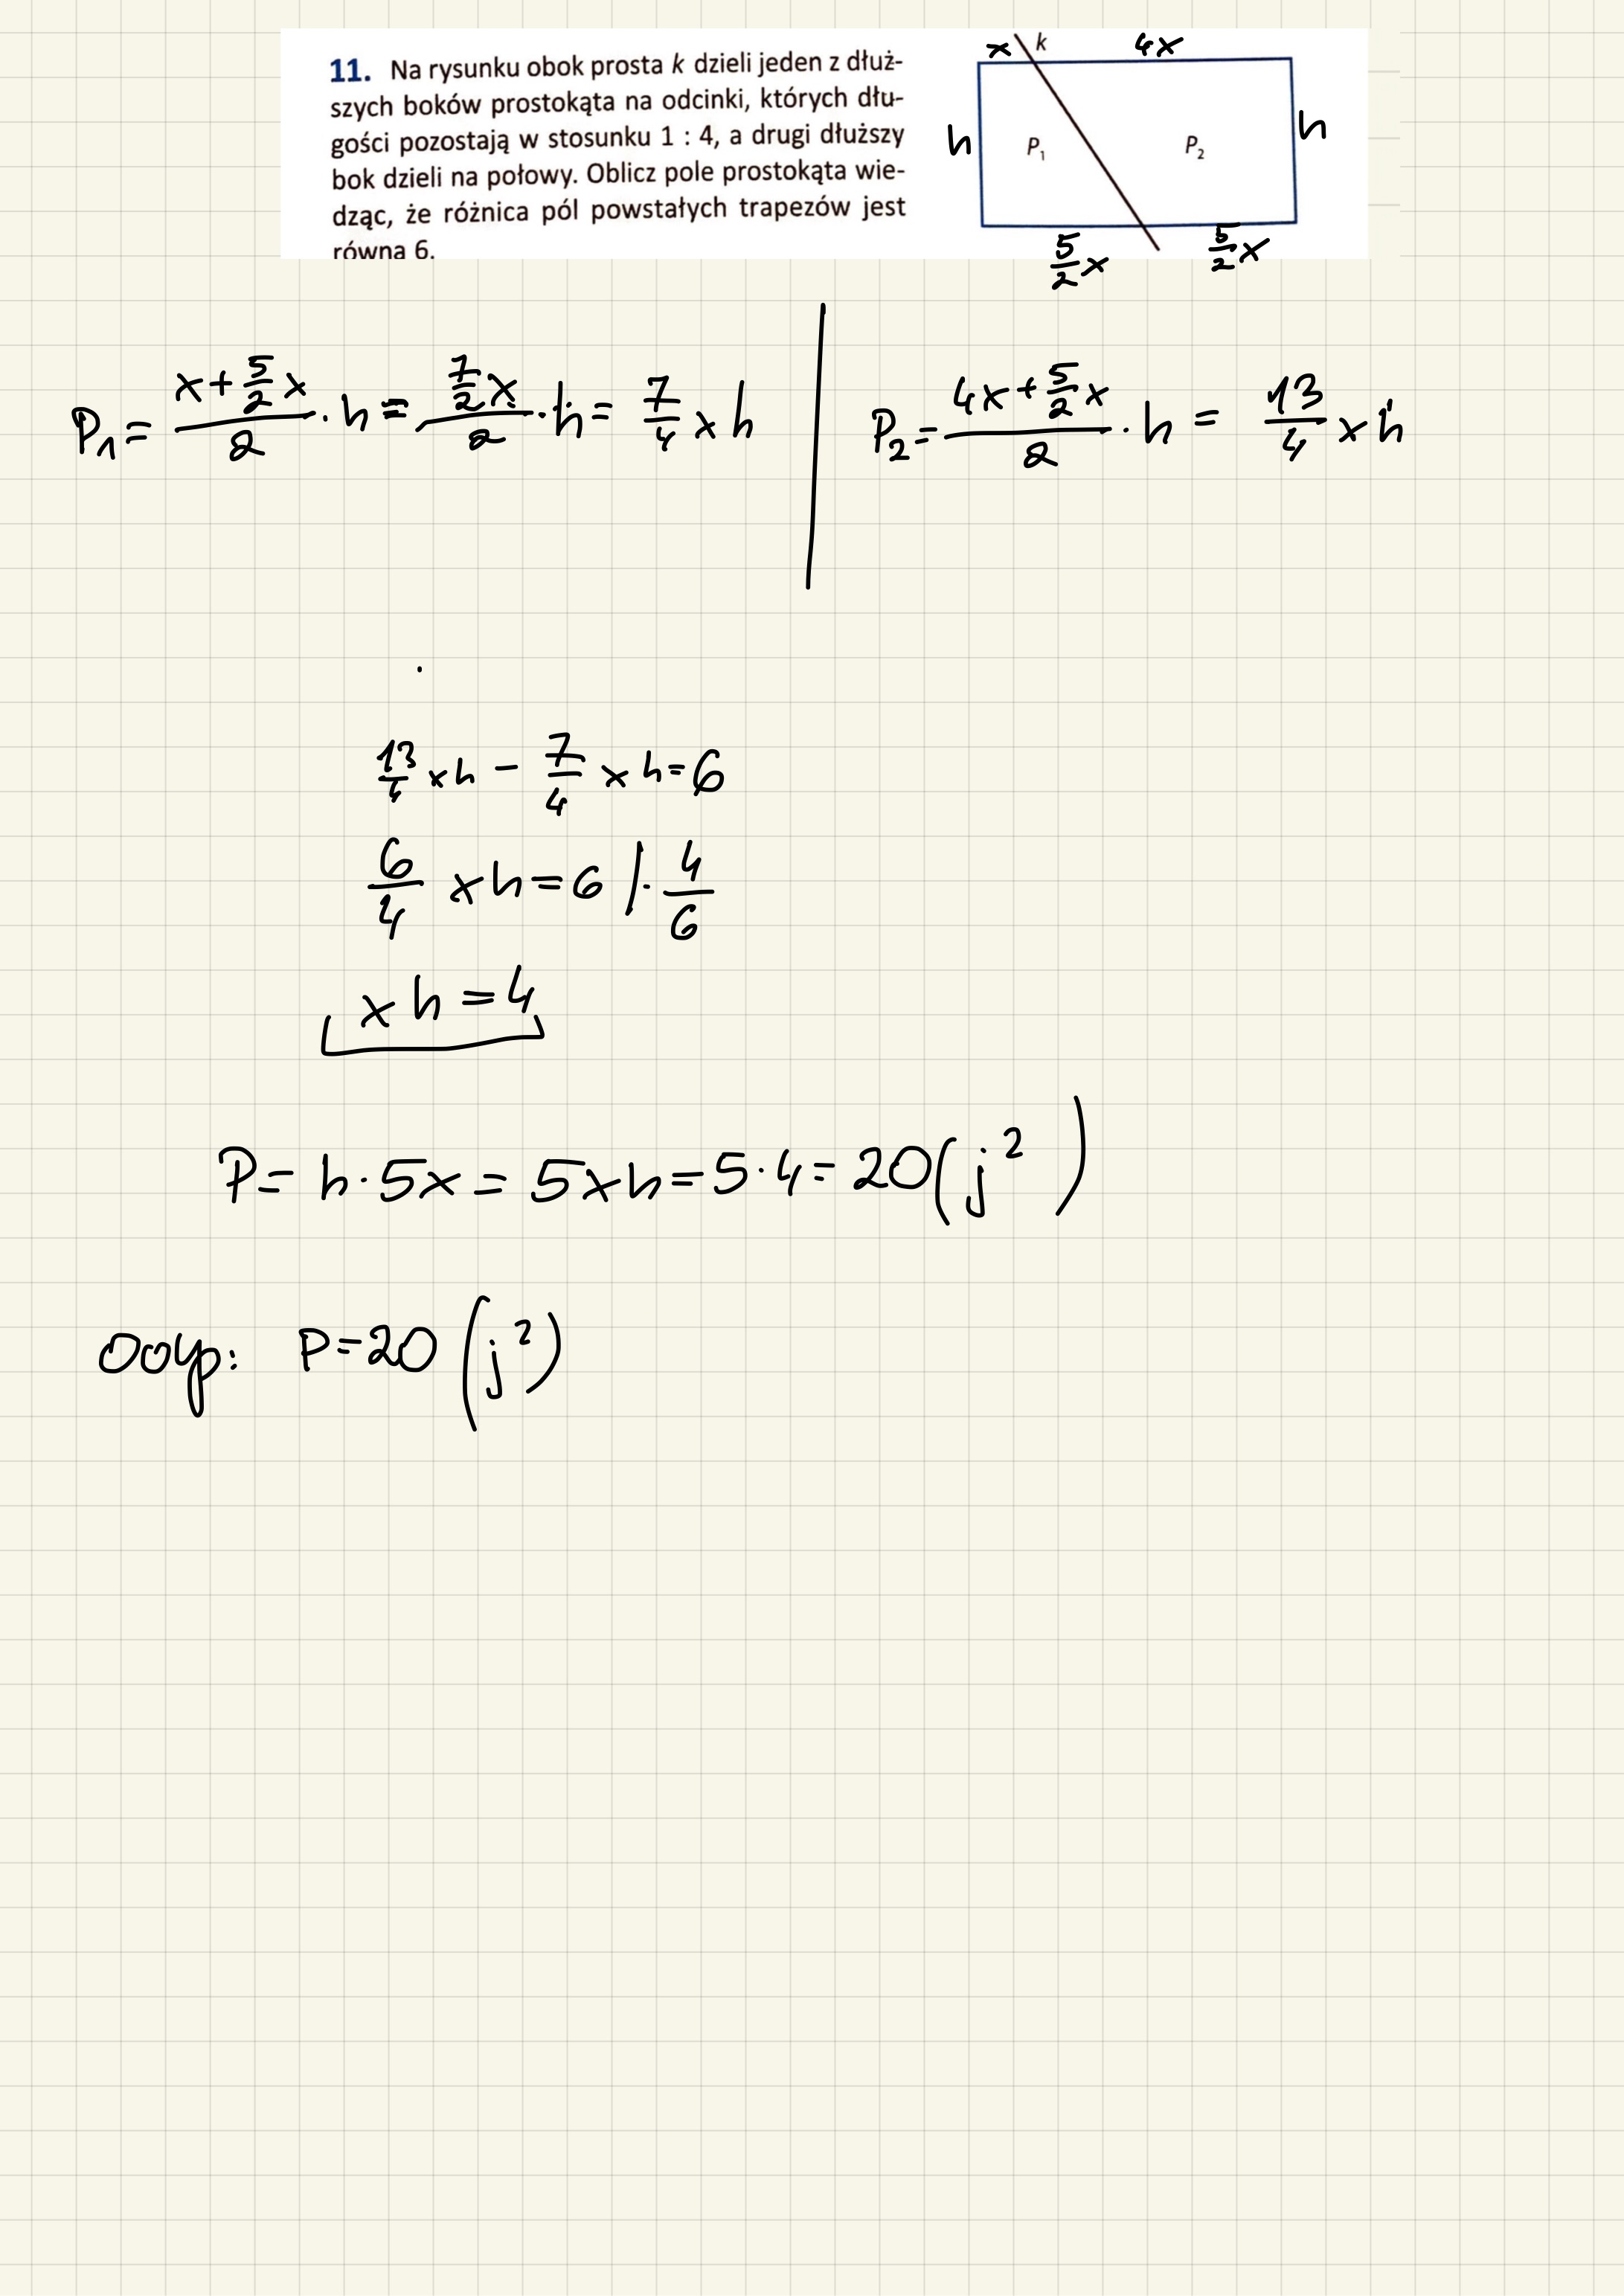 11. Na rysunku obok prosta k dzieli jeden z dłuż-
szych boków prostokąta na odcinki, których dłu-
gości pozostają w stosunku 1 : 4, a drugi dłuższy
bok dzieli na połowy. Oblicz pole prostokąta wie-
dząc, że różnica pól powstałych trapezów jest
równa 6.
x k 4x
h P₁ P₂ h
5/2 x 5/2 x
P₁ = (x + 5/2 x)/2 · h = (7/2 x)/2 · h = 7/4 x h
P₂ = (4x + 5/2 x)/2 · h = 13/4 x h
13/4 x h - 7/4 x h = 6
6/4 x h = 6 / · 4/6
x h = 4
P = h · 5x = 5xh = 5 · 4 = 20 (j²)
Odp: P = 20 (j²)